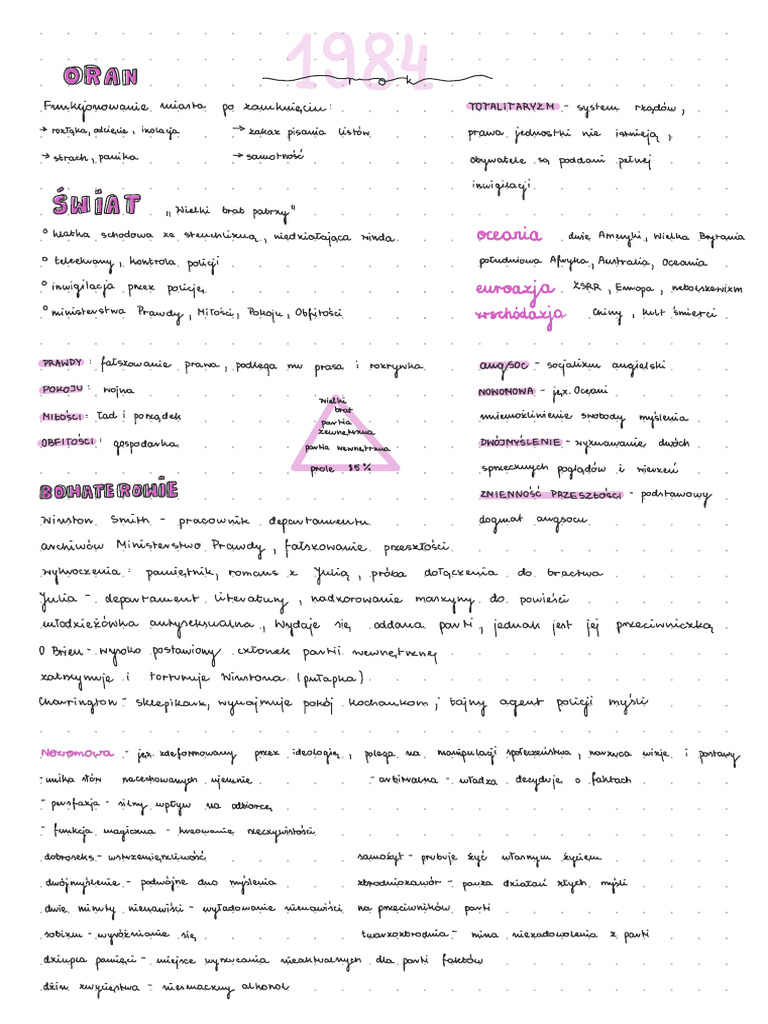 1984
rok
ORAN
Funkcjonowanie miasta po zamknięciu:
→ rozłąka, odcięcie, izolacja
→ zakaz pisania listów
→ strach, panika
→ samotność
TOTALITARYZM - system rządów,
prawa jednostki nie istnieją,
obywatele są poddani pełnej
inwigilacji
ŚWIAT
„Wielki brat patrzy"
° klatka schodowa ze stęchlizną, niedziałająca winda
° teleekrany, kontrola policji
° inwigilacja przez policję
° ministerstwa Prawdy, Miłości, Pokoju, Obfitości
oceania dwie Ameryki, Wielka Brytania
południowa Afryka, Australia, Oceania
euroazja ZSRR, Europa, neobolszewizm
wschódazja Chiny, kult śmierci
PRAWDY: fałszowanie prawa, podlega mu prasa i rozrywka
POKOJU: wojna
MIŁOŚCI: ład i porządek
OBFITOŚCI: gospodarka
Wielki
brat
partia
zewnętrzna
partia wewnętrzna
prole 85%
ang/soc - socjalizm angielski
NOWOMOWA - jęz. Oceani
uniemożliwienie swobody myślenia
DWÓJMYŚLENIE - wyznawanie dwóch
sprzecznych poglądów i wierzeń
ZMIENNOŚĆ PRZESZŁOŚCI - podstawowy
dogmat angsocu
BOHATEROWIE
Winston Smith - pracownik departamentu
archiwów Ministerstwo Prawdy, fałszowanie przeszłości
wykroczenia: pamiętnik, romans z Julią, próba dołączenia do bractwa
Julia - departament literatury, nadzorowanie maszyny do powieści
młodzieżówka antyseksualna, wydaje się oddana partii, jednak jest jej przeciwniczką
O Brien - wysoko postawiony członek partii wewnętrznej
zatrzymuje i torturuje Winstona (pułapka)
Charrington - sklepikarz, wynajmuje pokój kochankom; tajny agent policji myśli
Nowomowa - jęz. zdeformowany przez ideologię, polega na manipulacji społeczeństwa, narzuca wizje i postawy
- unika słów nacechowanych ujemnie
- arbitralna - władza decyduje o faktach
- persfazja - silny wpływ na odbiorcę
- funkcja magiczna - kreowanie rzeczywistości
dobroseks - wstrzemięźliwość
samożyt - próbuje żyć własnym życiem
dwójmyślenie - podwójne dno myślenia
zbrodniozawór - pauza działań złych myśli
dwie minuty nienawiści - wyładowanie nienawiści na przeciwników partii
sobizm - wyróżnianie się
twarzozbrodnia - mina niezadowolenia z partii
dziupla pamięci - miejsce wyrzucania nieaktualnych dla partii faktów
dżin zwycięstwa - niesmaczny alkohol